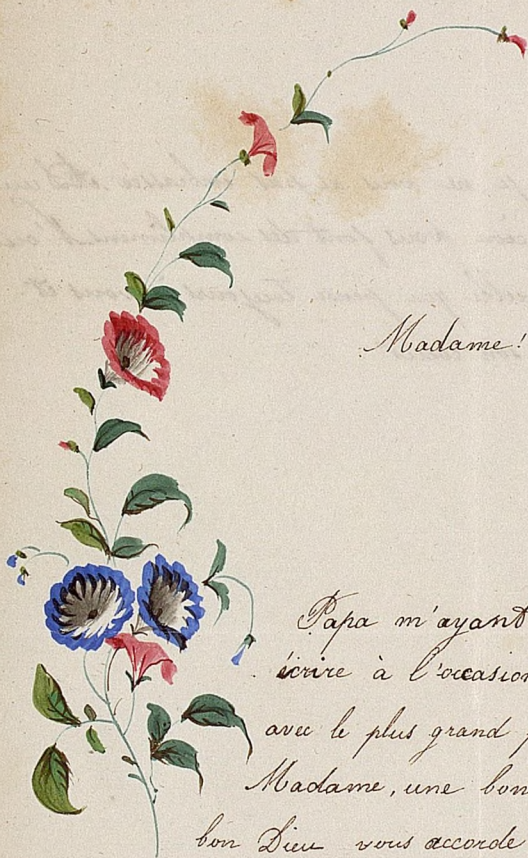 Madame!
Papa m'ayant
écrire à l'occasion
avec le plus grand
Madame, une bon
bon Dieu vous accorde